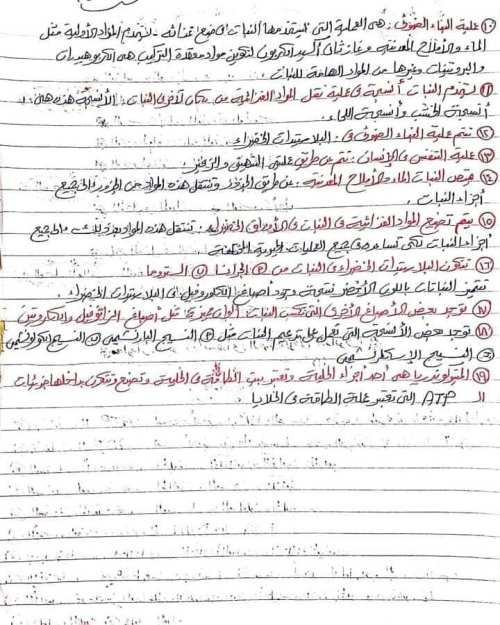 ⑩ عملية البناء الضوئى : هى العملية التى يستخدمها النبات فى صنع غذائه . يستخدم المواد الأولية مثل
الماء والأملاح المعدنية وغاز ثانى أكسيد الكربون لتكوين مواد معقدة التركيب هى الكربوهيدرات
والبروتينات وغيرها من المواد الهامة للنبات .
⑪ يستخدم النبات أنسجة فى عملية نقل المواد الغذائية من مكان لآخر فى النبات . الأنسجة هذه هى :
أنسجة الخشب وأنسجة اللحاء .
⑫ تتم عملية البناء الضوئى فى : البلاستيدات الخضراء
⑬ عملية التنفس فى الإنسان : تتم عن طريق عمليتى الشهيق والزفير .
⑭ يمتص النبات الماء والأملاح المعدنية : عن طريق الجذور وتنتقل هذه المواد من الجذور إلى جميع
أجزاء النبات .
⑮ يتم تصنيع المواد الغذائية فى النبات فى الأوراق الخضراء . تنتقل هذه المواد بعد ذلك إلى جميع
أجزاء النبات لكى تساعده فى جميع العمليات الحيوية المختلفة
⑯ تتكون البلاستيدات الخضراء فى النبات من ① الجرانا ② الستروما
تتميز النباتات باللون الأخضر نتيجة وجود أصباغ الكلوروفيل فى البلاستيدات الخضراء .
⑰ توجد بعض الأصباغ الأخرى التى تكسب النبات ألوان مميزة مثل أصباغ الزانثوفيل والكاروتين
⑱ توجد بعض الأنسجة التى تعمل على تدعيم النبات مثل ① النسيج البارنشيمى ② النسيج الكولنشيمى
③ النسيج الإسكلرنشيمى
⑲ الميتوكوندريا هى أحد أجزاء الخلية وتعتبر بيت الطاقة فى الخلية وتصنع وتتكون بداخلها جزيئات
الـ ATP التى تعتبر عملة الطاقة فى الخلايا .